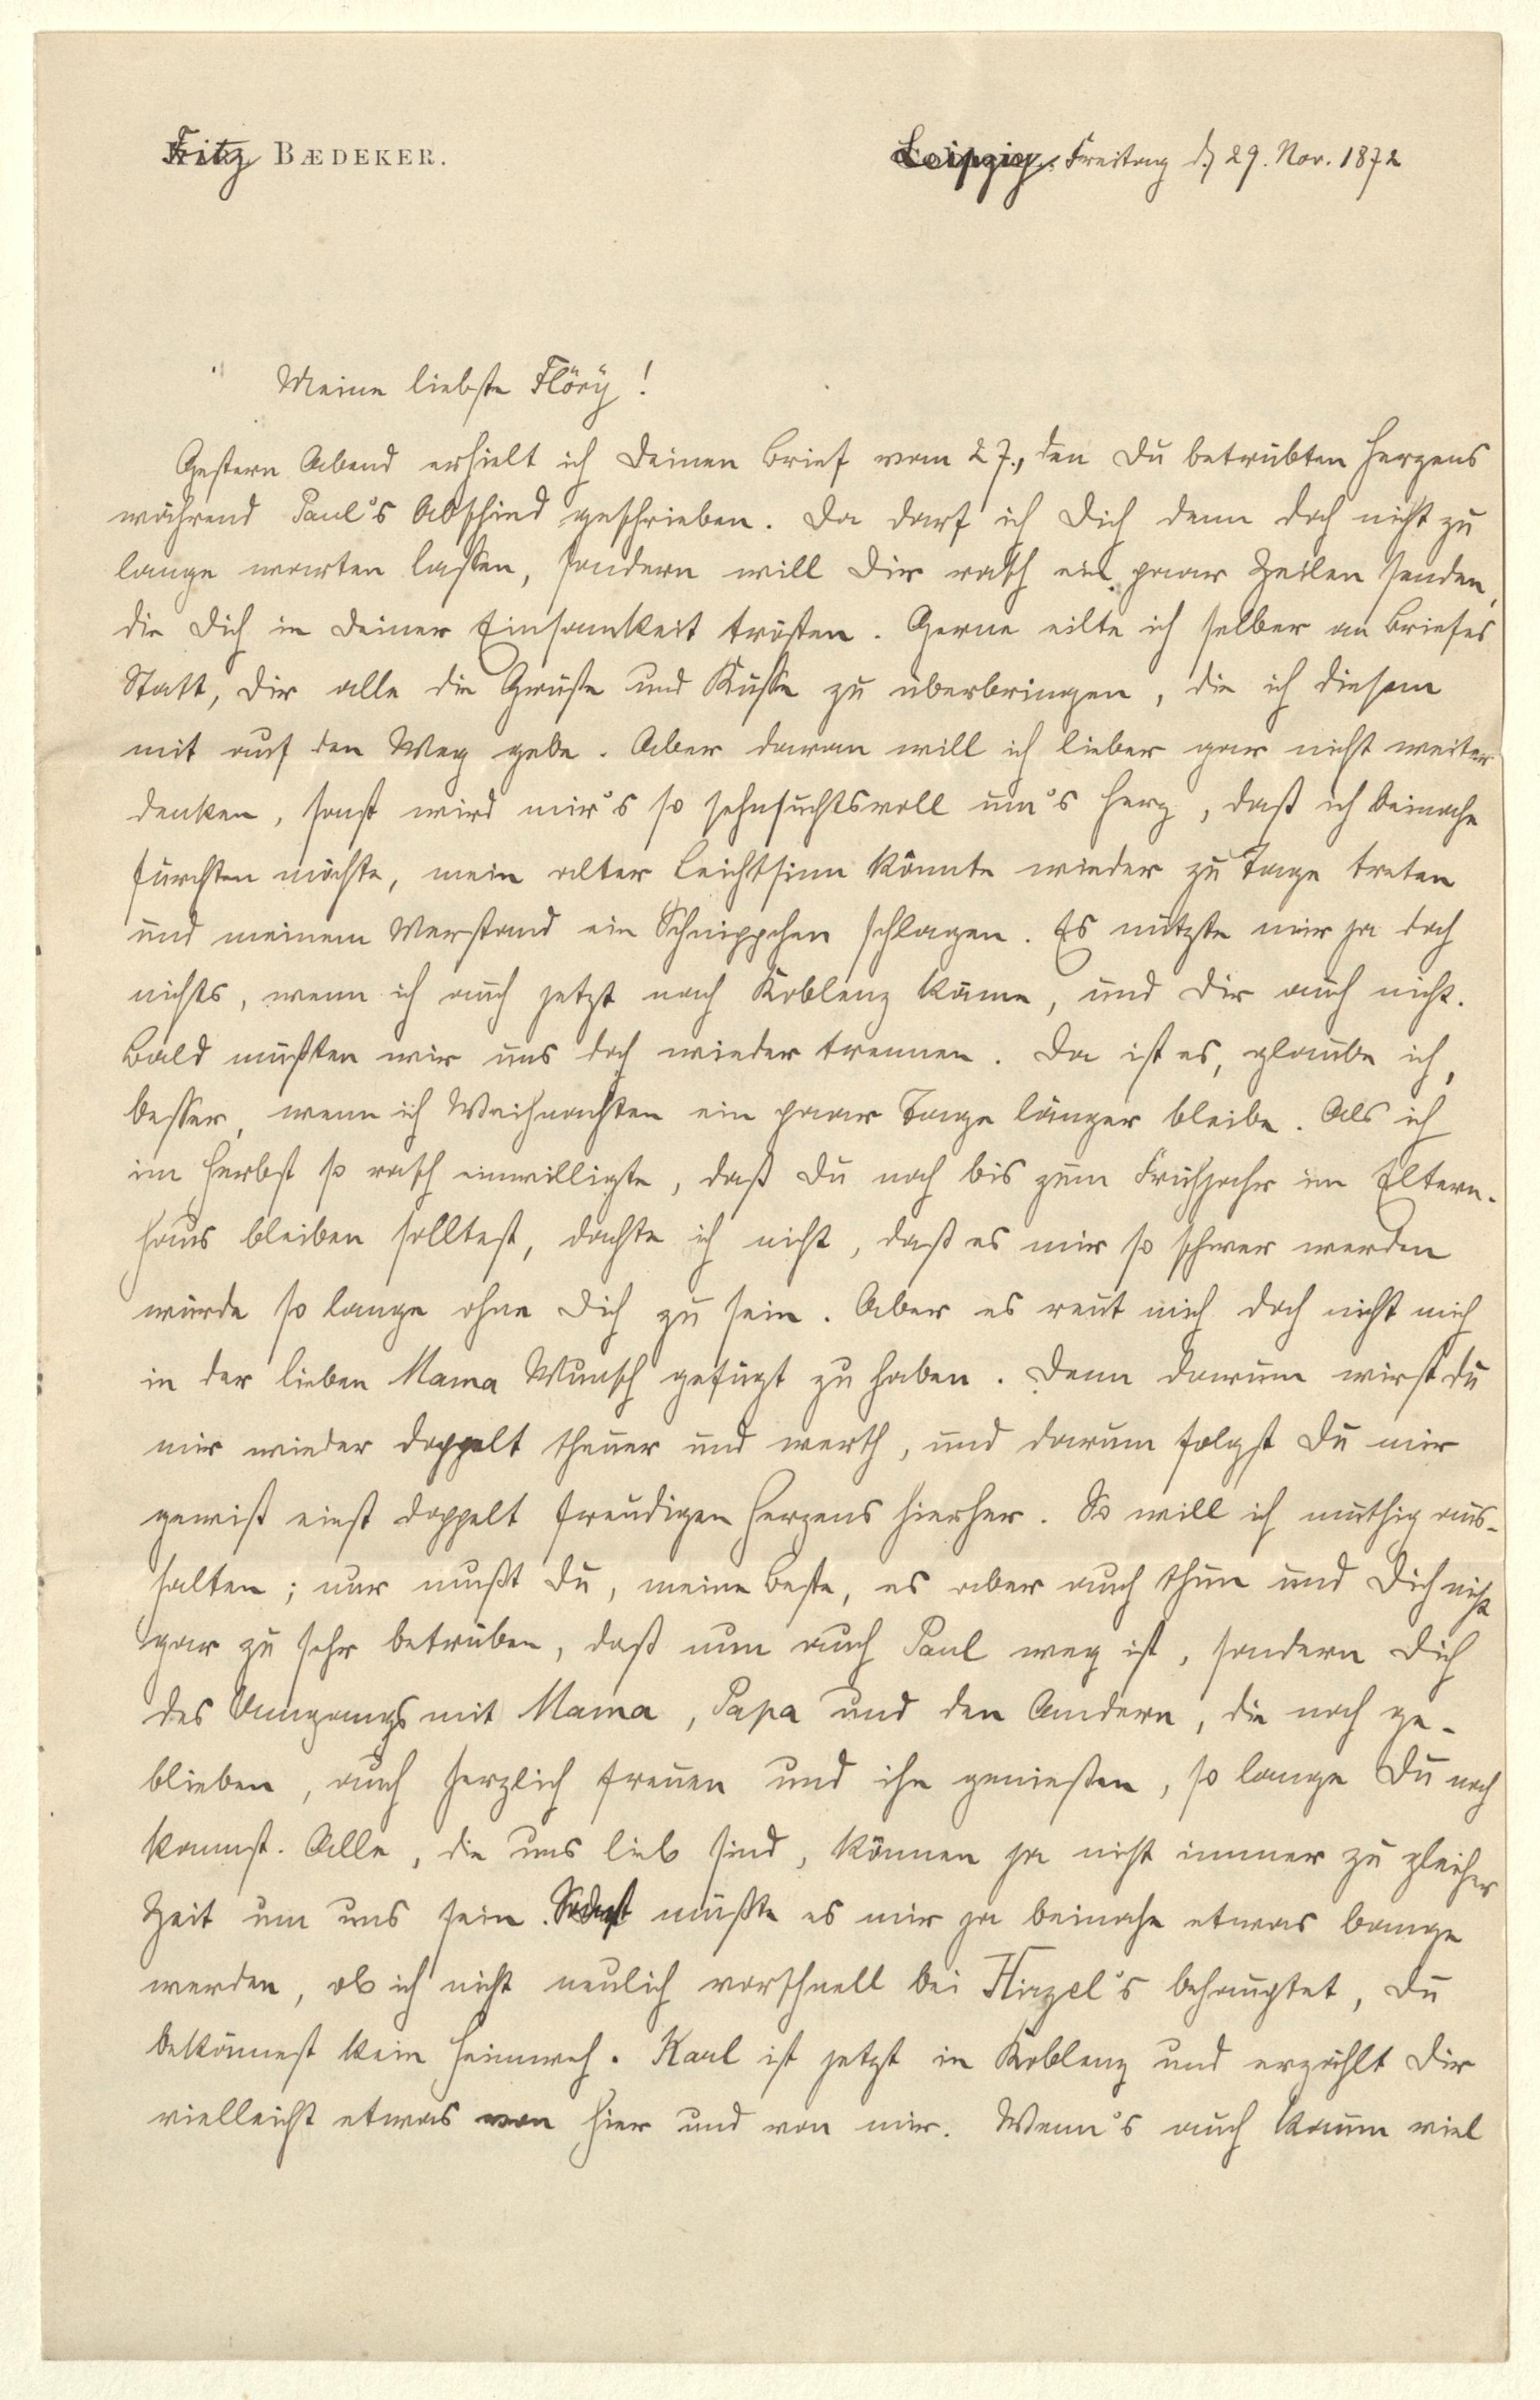 Fritz BÆDEKER.
Leipzig, Freitag d. 29. Nov. 1872
Meine liebste Flöry!
Gestern Abend erhielt ich Deinen Brief vom 27., den Du betrübten Herzens
während Paul's Abschied geschrieben. Da darf ich Dich denn doch nicht zu
lange warten lassen, sondern will Dir rasch ein paar Zeilen senden,
die Dich in Deiner Einsamkeit trösten. Gerne eilte ich selber an Briefes
Statt, Dir alle die Grüße und Küsse zu überbringen, die ich diesem
mit auf den Weg gebe. Aber daran will ich lieber gar nicht weiter
denken, sonst wird mir's so sehnsuchtsvoll um's Herz, daß ich beinahe
fürchten möchte, mein alter Leichtsinn könnte wieder zu Tage treten
und meinem Verstand ein Schnippchen schlagen. Es nützte mir ja doch
nichts, wenn ich auch jetzt nach Koblenz käme, und Dir auch nicht.
Bald müßten wir uns doch wieder trennen. Da ist es, glaube ich,
besser, wenn ich Weihnachten ein paar Tage länger bleibe. Als ich
im Herbst so rasch einwilligte, daß Du noch bis zum Frühjahr im Eltern-
haus bleiben solltest, dachte ich nicht, daß es mir so schwer werden
würde so lange ohne Dich zu sein. Aber es reut mich doch nicht mich
in der lieben Mama Wunsch gefügt zu haben. Denn darum wirst Du
mir wieder doppelt theuer und werth, und darum folgst Du mir
gewiß einst doppelt freudigen Herzens hierher. So will ich muthig aus-
halten; nur mußt Du, meine Beste, es aber auch thun und Dich nicht
gar zu sehr betrüben, daß nun auch Paul weg ist, sondern Dich
des Umgangs mit Mama, Papa und den Andern, die noch ge-
blieben, auch herzlich freuen und ihn genießen, so lange Du noch
kannst. Alle, die uns lieb sind, können ja nicht immer zu gleicher
Zeit um uns sein. Sonst müßte es mir ja beinahe etwas bange
werden, ob ich nicht neulich vorschnell bei Hirzel's behauptet, Du
bekämest kein Heimweh. Karl ist jetzt in Koblenz und erzählt Dir
vielleicht etwas von hier und von mir. Wenn's auch kaum viel